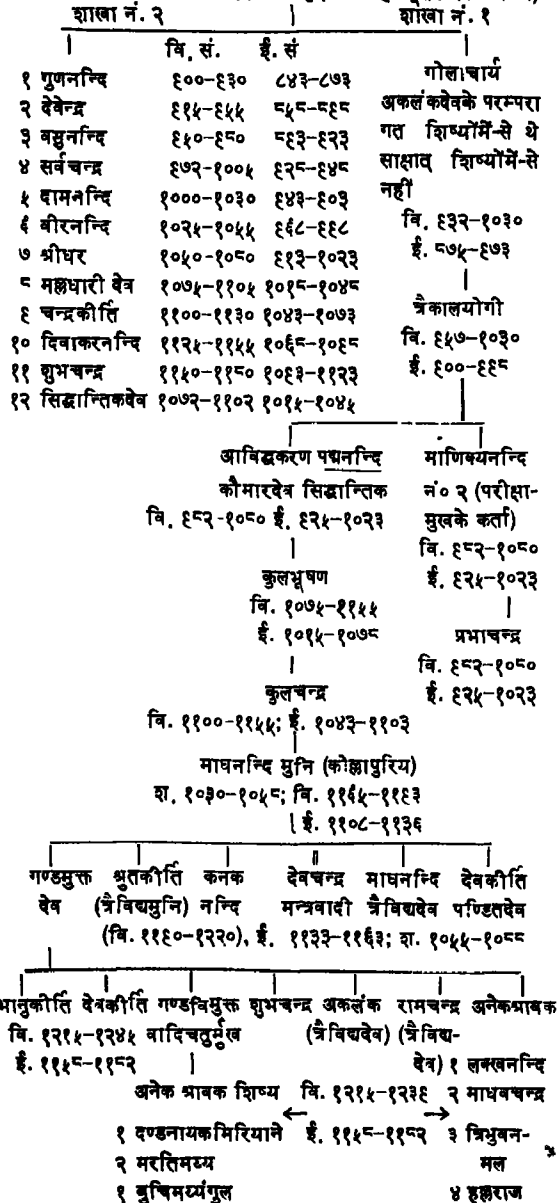 शाखा नं. २ शाखा नं. १
वि. सं. ई. सं
१ गुणनन्दि ९००-९३० ८४३-८७३
२ देवेन्द्र ९१५-९५५ ८५८-८९८
३ वसुनन्दि ९५०-९८० ८९३-९२३
४ सर्वचन्द्र ९७२-१००५ ९२८-९४८
५ दामनन्दि १०००-१०३० ९४३-९०३
६ वीरनन्दि १०२५-१०५५ ९६८-९९८
७ श्रीधर १०५०-१०८० ९१३-१०२३
८ मल्लधारी देव १०७५-११०५ १०१८-१०४८
९ चन्द्रकीर्ति ११००-११३० १०४३-१०७३
१० दिवाकरनन्दि ११२५-११५५ १०६८-१०९८
११ शुभचन्द्र ११५०-११८० १०९३-११२३
१२ सिद्धान्तिकदेव १०७२-११०२ १०१५-१०४५
गोलाचार्य
अकलंकदेवके परम्परा
गत शिष्योंमें-से थे
साक्षात् शिष्योंमें-से
नहीं
वि. ९३२-१०३०
ई. ८७५-९७३
त्रैकालयोगी
वि. ९५७-१०३०
ई. ९००-९९८
आविद्धकरण पद्मनन्दि माणिक्यनन्दि
कौमारदेव सिद्धान्तिक नं० २ (परीक्षा-
वि. ९८२-१०८० ई. ९२५-१०२३ मुखके कर्ता)
वि. ९८२-१०८०
कुलभूषण ई. ९२५-१०२३
वि. १०७५-११५५
ई. १०१५-१०७८ प्रभाचन्द्र
वि. ९८२-१०८०
कुलचन्द्र ई. ९२५-१०२३
वि. ११००-११५५; ई. १०४३-११०३
माघनन्दि मुनि (कोल्लापुरिय)
श. १०३०-१०५८; वि. ११६५-११९३
ई. ११०८-११३६
गण्डमुक्त श्रुतकीर्ति कनक देवचन्द्र माघनन्दि देवकीर्ति
देव (त्रैविद्यमुनि) नन्दि मन्त्रवादी त्रैविद्यदेव पण्डितदेव
(वि. ११९०-१२२०), ई. ११३३-११६३; श. १०५५-१०८८
भानुकीर्ति देवकीर्ति गण्डविमुक्त शुभचन्द्र अकलंक रामचन्द्र अनेकश्रावक
वि. १२१५-१२४५ वादिचतुर्मुख (त्रैविद्यदेव) (त्रैविद्य-
ई. ११५८-११८२ देव) १ लक्खनन्दि
अनेक श्रावक शिष्य वि. १२१५-१२३९ २ माधवचन्द्र
१ दण्डनायकमिरियाने ← ई. ११५८-११८२ → ३ त्रिभुवन-
२ मरतिमय्य मल
१ बुचिमय्यंगुल ४ हुल्लराज